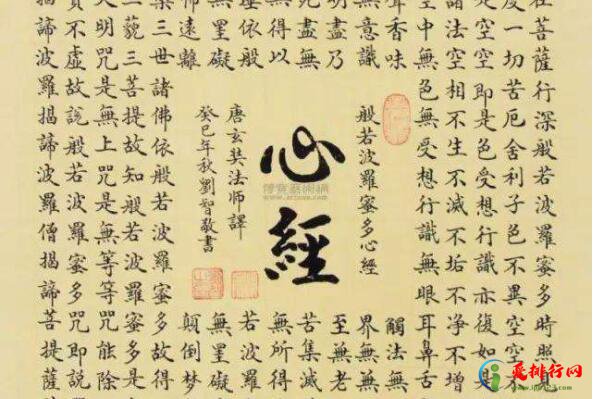 在菩薩行深般若波羅蜜多時照見
度一切苦厄舍利子色不異空空不
是空空即是色受想行識亦復如是
諸法空相不生不滅不垢不淨不增
空中無色無受想行識無眼耳鼻舌
聲香味
觸法無
無意識
界無無
明盡乃
至無老
死盡無
苦集滅
無得以
無所得
埵依般
若波羅
無罣礙
無罣礙
怖遠離
顛倒夢
般若波羅蜜多心經
心經
唐玄奘法师譯
癸巳年秋劉智敬書
槃三世諸佛依般若波羅蜜多故得
三藐三菩提故知般若波羅蜜多是
大明咒是無上咒是無等等咒能除
實不虛故說般若波羅蜜多咒即說
揭諦波羅揭諦波羅僧揭諦菩提薩
排行网